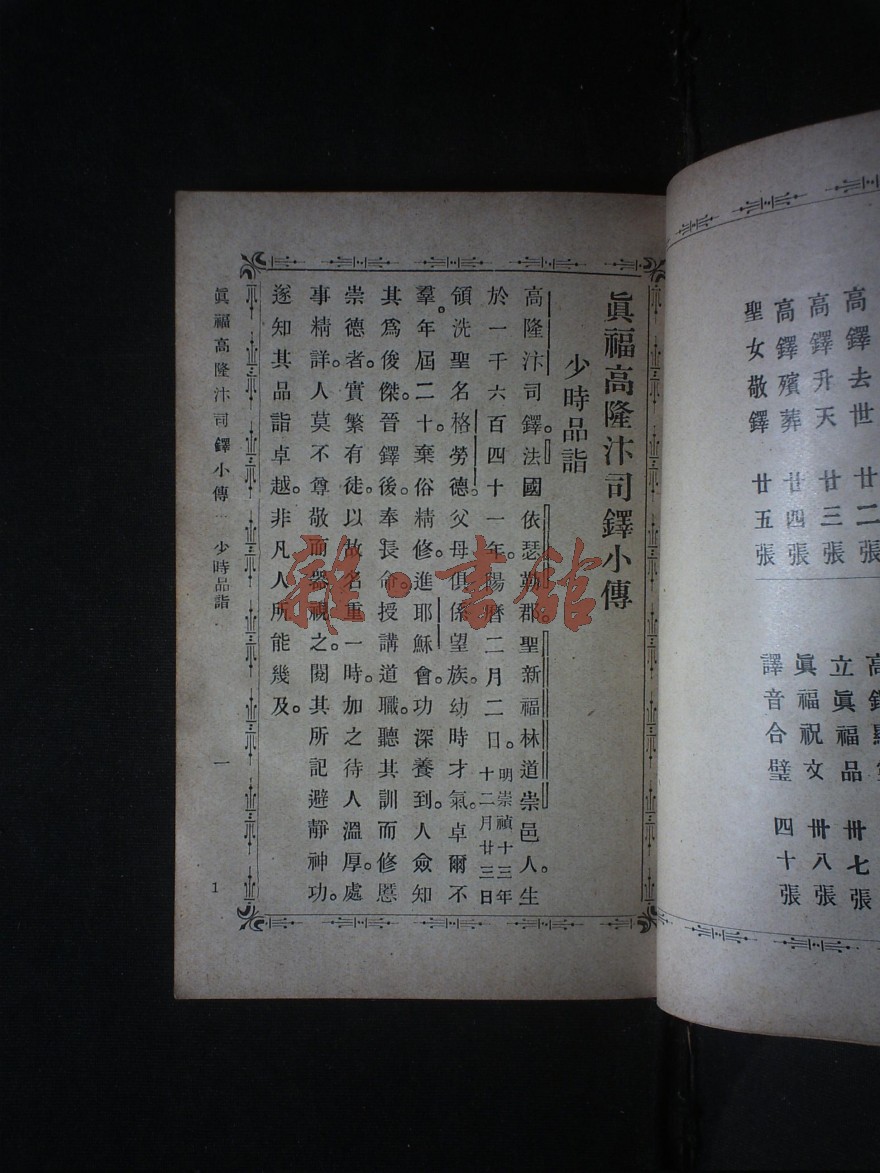 高鐸去世 廿二張
高鐸升天 廿三張
高鐸殯葬 廿四張
聖女敬鐸 廿五張
立眞福品 卅七張
眞福祝文 卅八張
譯音合璧 四十張
眞福高隆汴司鐸小傳
少時品詣
高隆汴司鐸。法國依瑟勒郡。聖新福林道崇邑人。生
於一千六百四十一年。陽曆二月二日。明崇禎十三年十二月廿三日
領洗聖名格勞德。父母俱係望族。幼時才氣。卓爾不
羣。年屆二十。棄俗精修。進耶穌會。功深養到。人僉知
其爲俊傑。晉鐸後。奉長命。授講道職。聽其訓而修慝
崇德者。實繁有徒。以故名重一時。加之待人溫厚。處
事精詳。人莫不尊敬而器視之。閱其所記避靜神功。
遂知其品詣卓越。非凡人所能幾及。
眞福高隆汴司鐸小傳 … 少時品詣 一 1
雜·書館